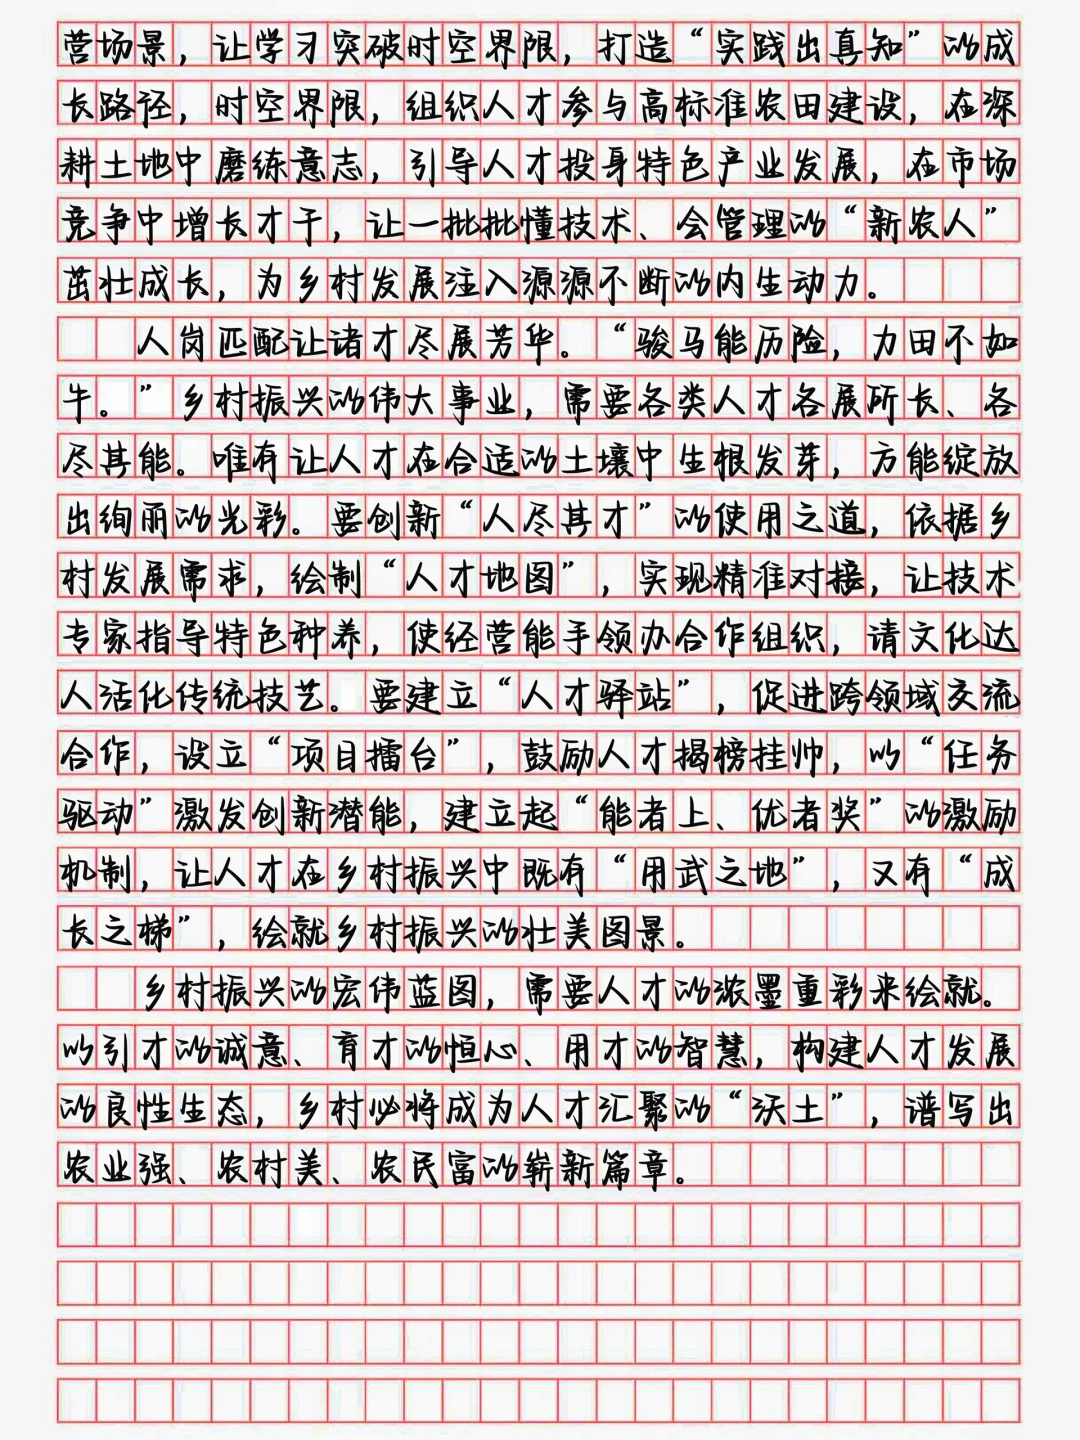 营场景，让学习突破时空界限，打造“实践出真知”的成
长路径，时空界限，组织人才参与高标准农田建设，在深
耕土地中磨练意志，引导人才投身特色产业发展，在市场
竞争中增长才干，让一批批懂技术、会管理的“新农人”
茁壮成长，为乡村发展注入源源不断的内生动力。
人岗匹配让诸才尽展芳华。“骏马能历险，力田不如
牛。”乡村振兴的伟大事业，需要各类人才各展所长、各
尽其能。唯有让人才在合适的土壤中生根发芽，方能绽放
出绚丽的光彩。要创新“人尽其才”的使用之道，依据乡
村发展需求，绘制“人才地图”，实现精准对接，让技术
专家指导特色种养，使经营能手领办合作组织，请文化达
人活化传统技艺。要建立“人才驿站”，促进跨领域交流
合作，设立“项目擂台”，鼓励人才揭榜挂帅，以“任务
驱动”激发创新潜能，建立起“能者上、优者奖”的激励
机制，让人才在乡村振兴中既有“用武之地”，又有“成
长之梯”，绘就乡村振兴的壮美图景。
乡村振兴的宏伟蓝图，需要人才的浓墨重彩来绘就。
以引才的诚意、育才的恒心、用才的智慧，构建人才发展
的良性生态，乡村必将成为人才汇聚的“沃土”，谱写出
农业强、农村美、农民富的崭新篇章。